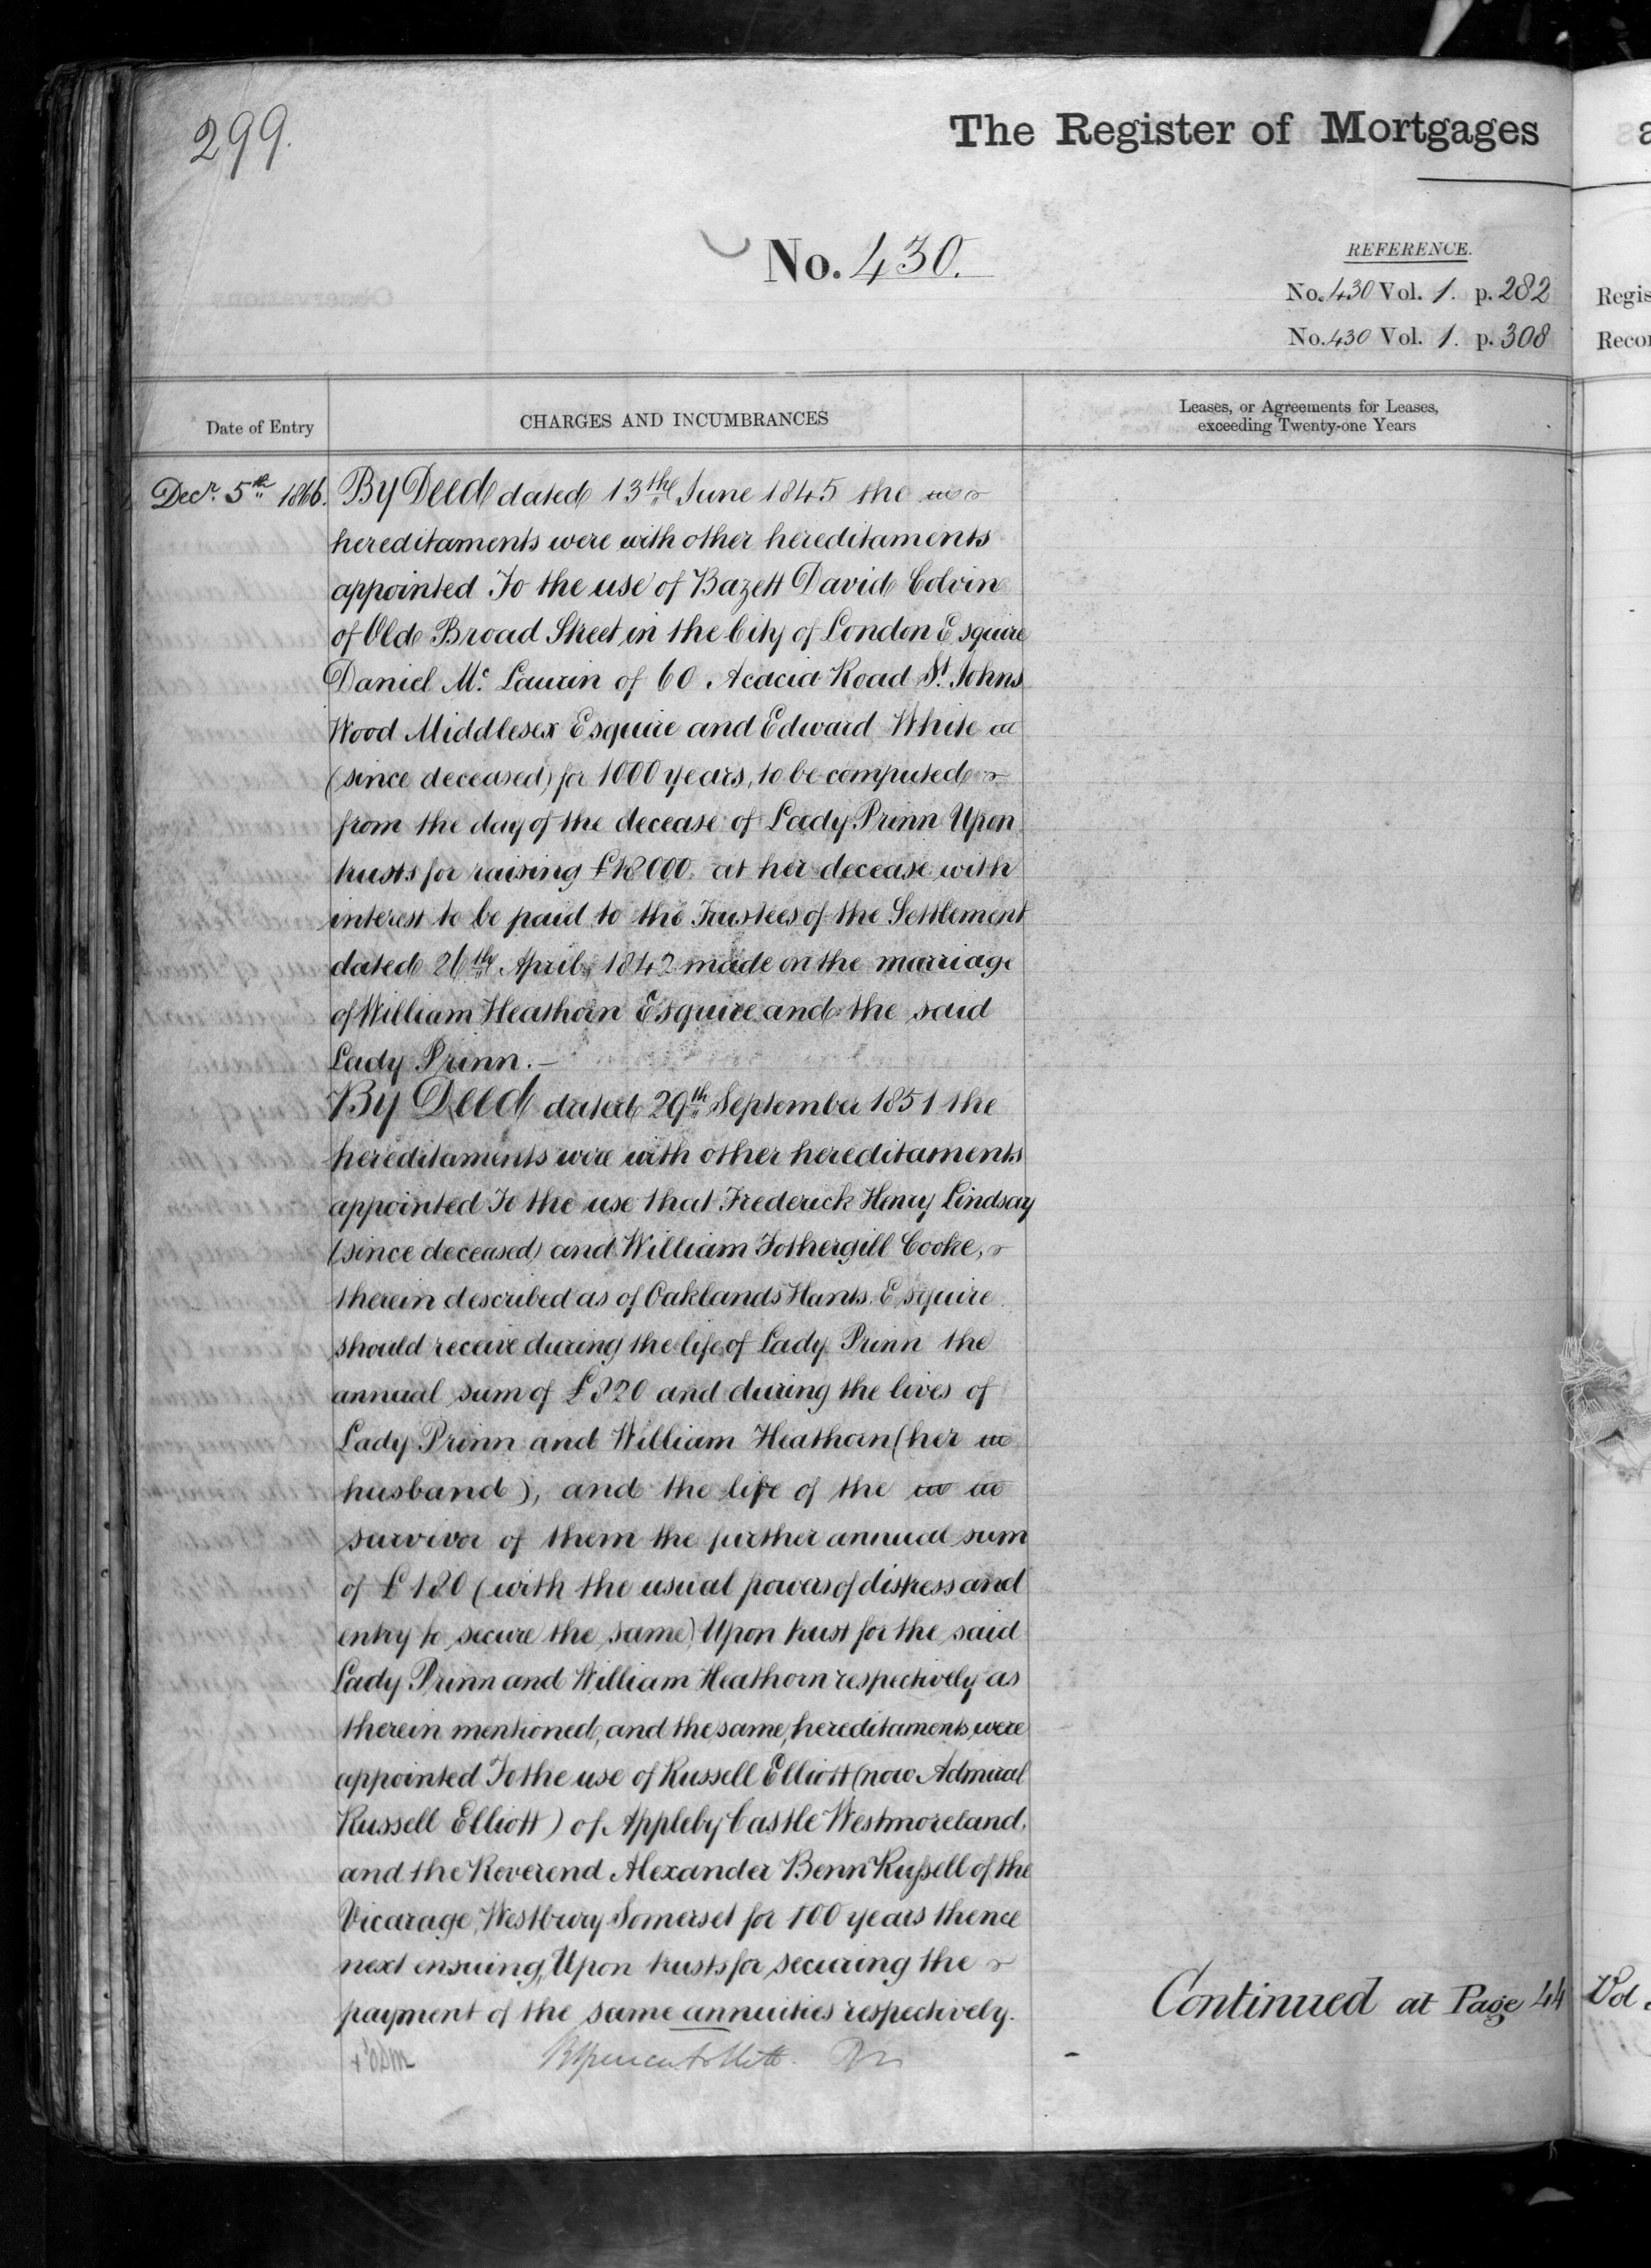 299.
The Register of Mortgages
No. 430.
REFERENCE.
No. 430 Vol. 1. p. 282
No. 430 Vol. 1. p. 308
Regis
Recor
Date of Entry
CHARGES AND INCUMBRANCES
Leases, or Agreements for Leases,
exceeding Twenty-one Years
Decr. 5th 1866. By Deed dated 13th June 1845 the
hereditaments were with other hereditaments
appointed To the use of Bazett David Colvin
of Old Broad Street in the City of London Esquire
Daniel Mc. Laurin of 60 Acacia Road St. Johns
Wood Middlesex Esquire and Edward White
(since deceased) for 1000 years, to be computed
from the day of the decease of Lady Prinn Upon
trusts for raising at her decease with
interest to be paid to the Trustees of the Settlement
dated 26th April, 1842 made on the marriage
of William Heathorn Esquire and the said
Lady Prinn.—
By Deed dated 29th September 1851 the
hereditaments were with other hereditaments
appointed To the use that Frederick Henry Lindsay
(since deceased) and William Fothergill Cooke,
therein described as of Oaklands Hants, Esquire
should receive during the life of Lady Prinn the
annual sum of and during the lives of
Lady Prinn and William Heathorn (her
husband), and the life of the
survivor of them the further annual sum
of £180 (with the usual powers of distress and
entry to secure the same) Upon trust for the said
Lady Prinn and William Heathorn respectively as
therein mentioned, and the same hereditaments were
appointed To the use of Russell Elliott (now Admiral
Russell Elliott) of Appleby Castle Westmoreland,
and the Reverend Alexander Benn Russell of the
Vicarage, Westbury Somerset for 100 years thence
next ensuing, Upon trusts for securing the
payment of the same annuities respectively.
Continued at Page 44 Vol